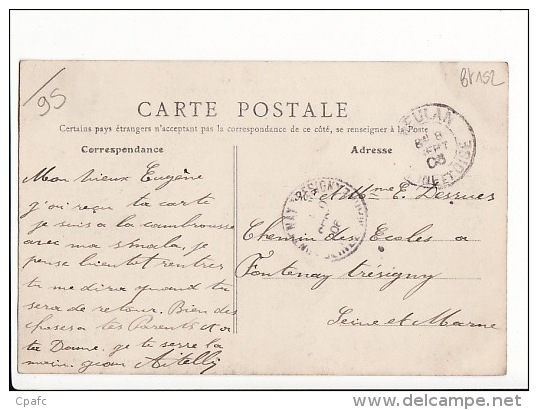 /95
BK152
CARTE POSTALE
Certains pays étrangers n'acceptant pas la correspondance de ce côté, se renseigner à la Poste
Correspondance
Adresse
Mon Vieux Eugène
j'ai reçu ta carte
je suis a la cambrousse
avec ma smala. je
pense bientot rentrer
tu me dira quand tu
sera de retour. Bien des
choses a tes Parents et a
ta Dame. je te serre la
main.
MEULAN
8
SEPT
08
SEINE ET OISE
Mme E. Desrues
Chemin des Ecoles a
Fontenay trésigny
Seine et Marne
© CPAFC
DELCAMPE.net